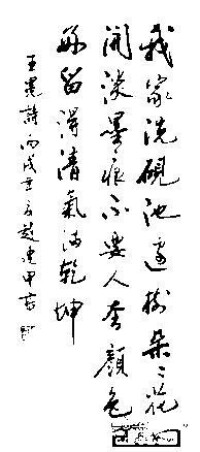 我家洗硯池邊樹朵々花
開淡墨痕不要人夸顏色
好留得清氣滿乾坤
王冕詩丙戌